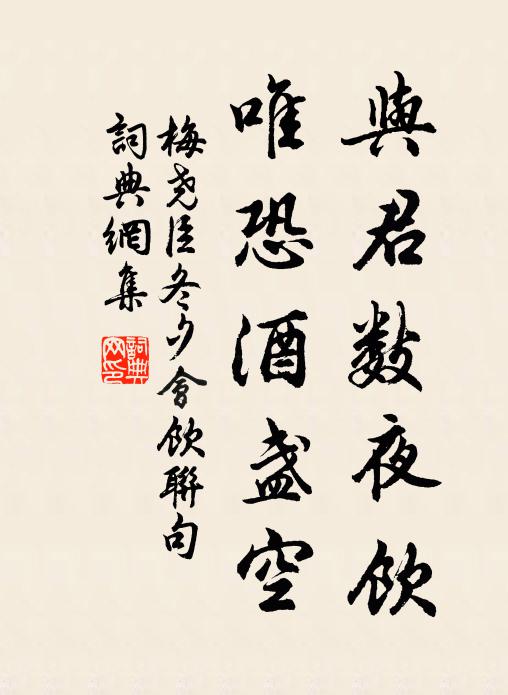 與君數夜飲
唯恐酒盞空
梅堯臣冬夕會飲聯句
詞典網集
詞典網印